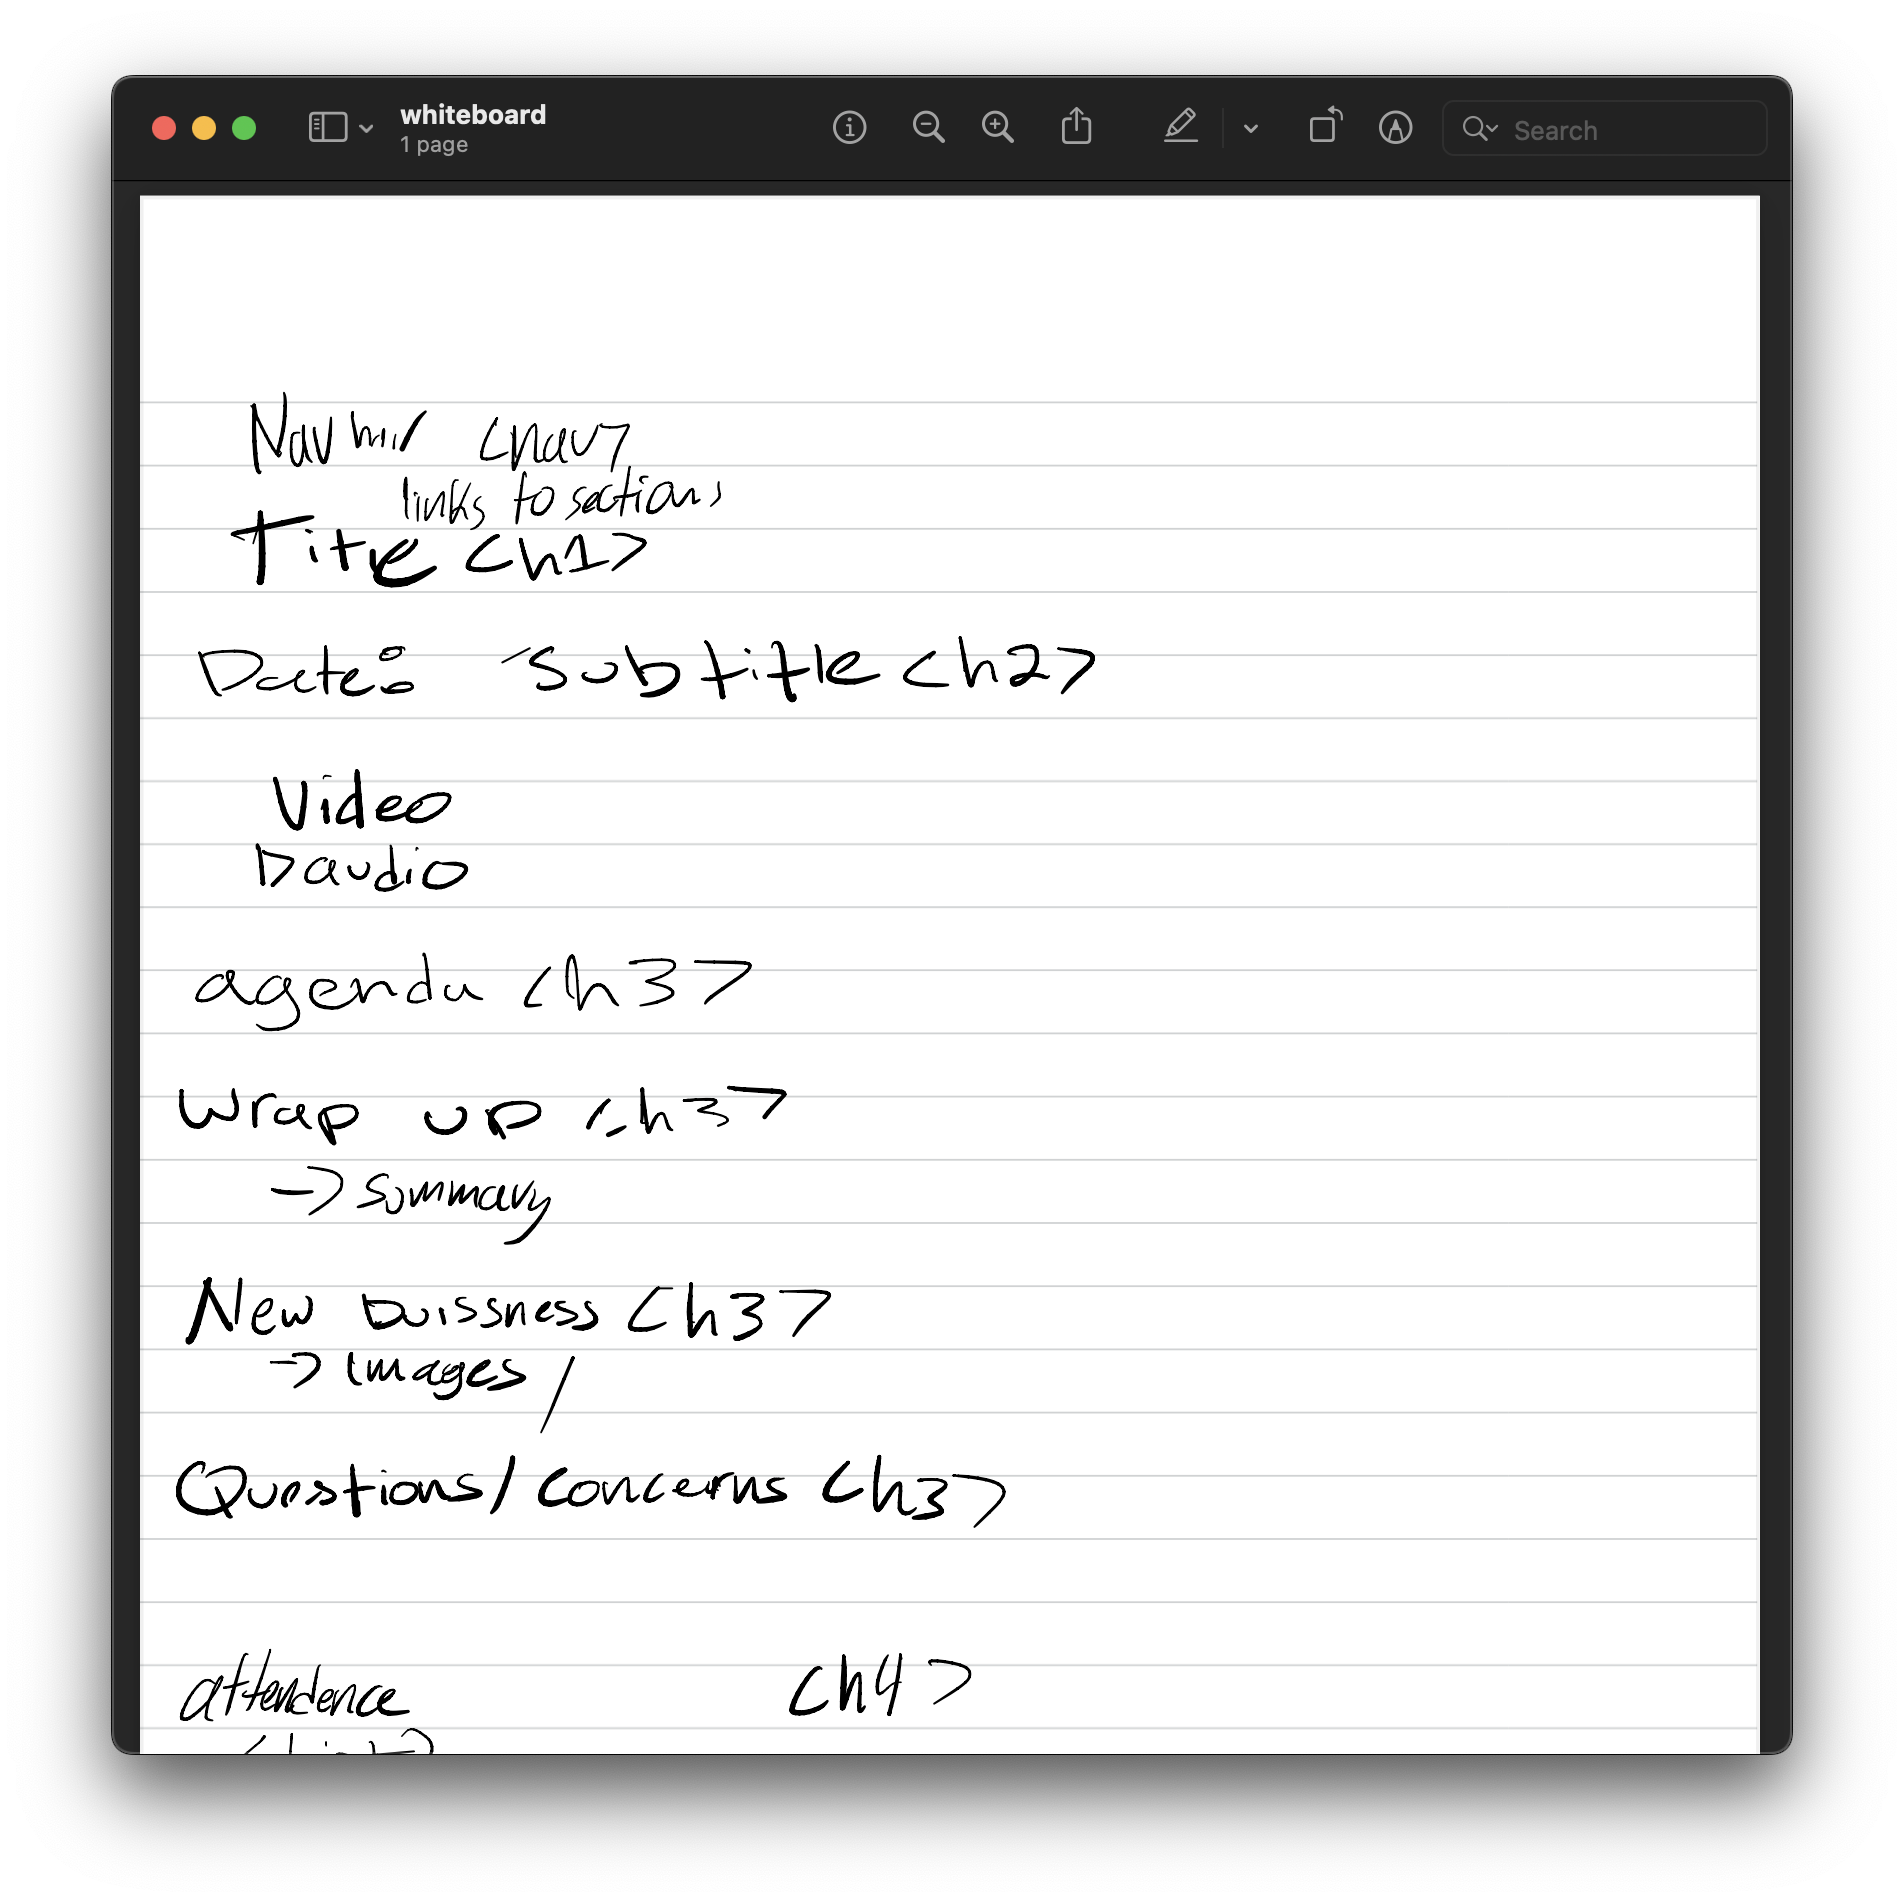 whiteboard
1 page
Search
Nav <nav>
links to sections
Title <h1>
Date: Subtitle <h2>
Video
audio
agenda <h3>
Wrap up <h3>
→ summary
New buissness <h3>
→ images /
Questions/concerns <h3>
attendence <h4>